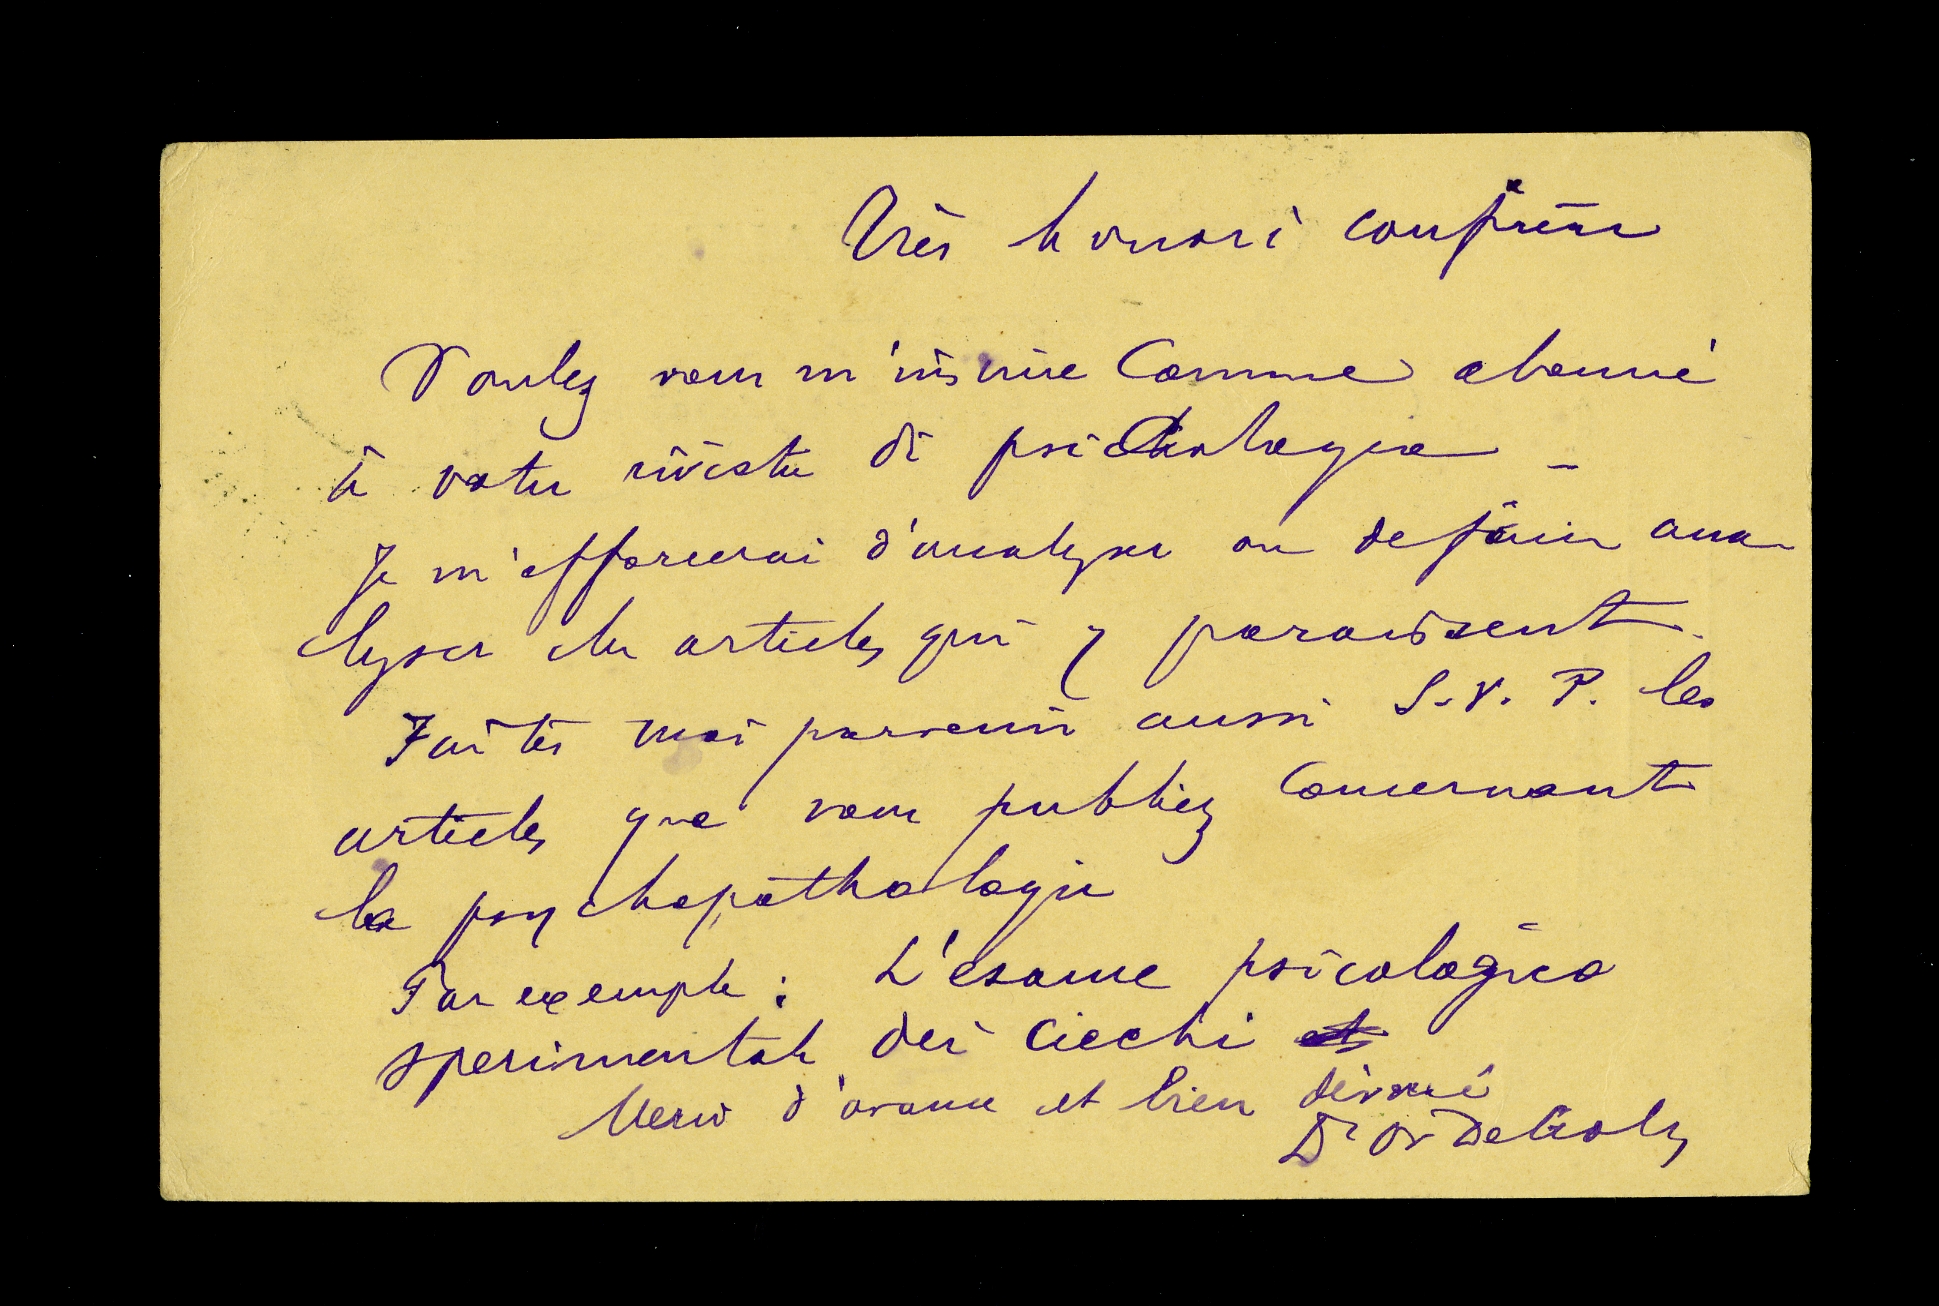 Très honoré confrère
Voulez vous m'inscrire comme abonné
à votre rivista di psichologia _
Je m'efforcerai d'analyser ou de faire ana-
lyser les articles qui y paraissent.
Faites moi parvenir aussi S.V.P. les
articles que vous publiez concernant
la psychopathologie
Par exemple : L'esame psicologico
sperimentale dei ciechi
Merci d'avance et bien dévoué
Dr Ov Decroly